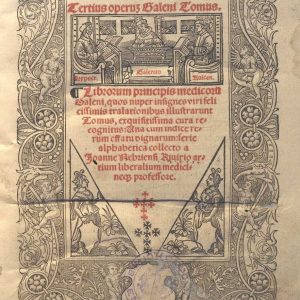 Tertius operum Galeni Tomus.
Galenus
¶ Librorum principis medicorum
Galeni, quos nuper insignes viri feli
cissimis tralationibus illustrarunt
Tomus, exquisitissima cura re
cognitus: Una cum indice re
rum effatu dignarum: serie
alphabetica collecto a
Joanne Nebriensi
artium liberalium medici
neq; professore.